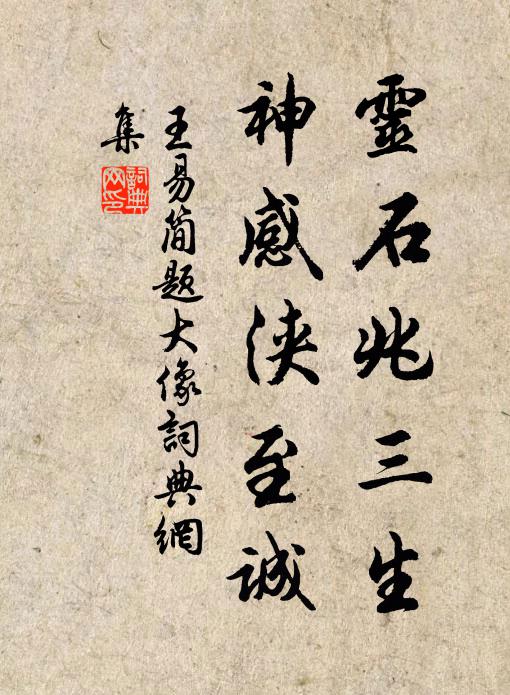 靈石兆三生
神感浹至誠
王易簡題大像詞典網
集
詞典
网印